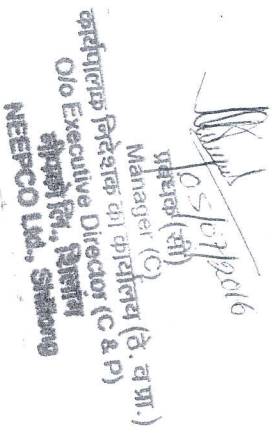 05/07/2016
प्रबंधक (सी)
Manager (C)
कार्यपालक निदेशक का कार्यालय (ठे. व प्रा.)
O/o Executive Director (C & P)
शिलांग
NEEPCO Ltd., Shillong